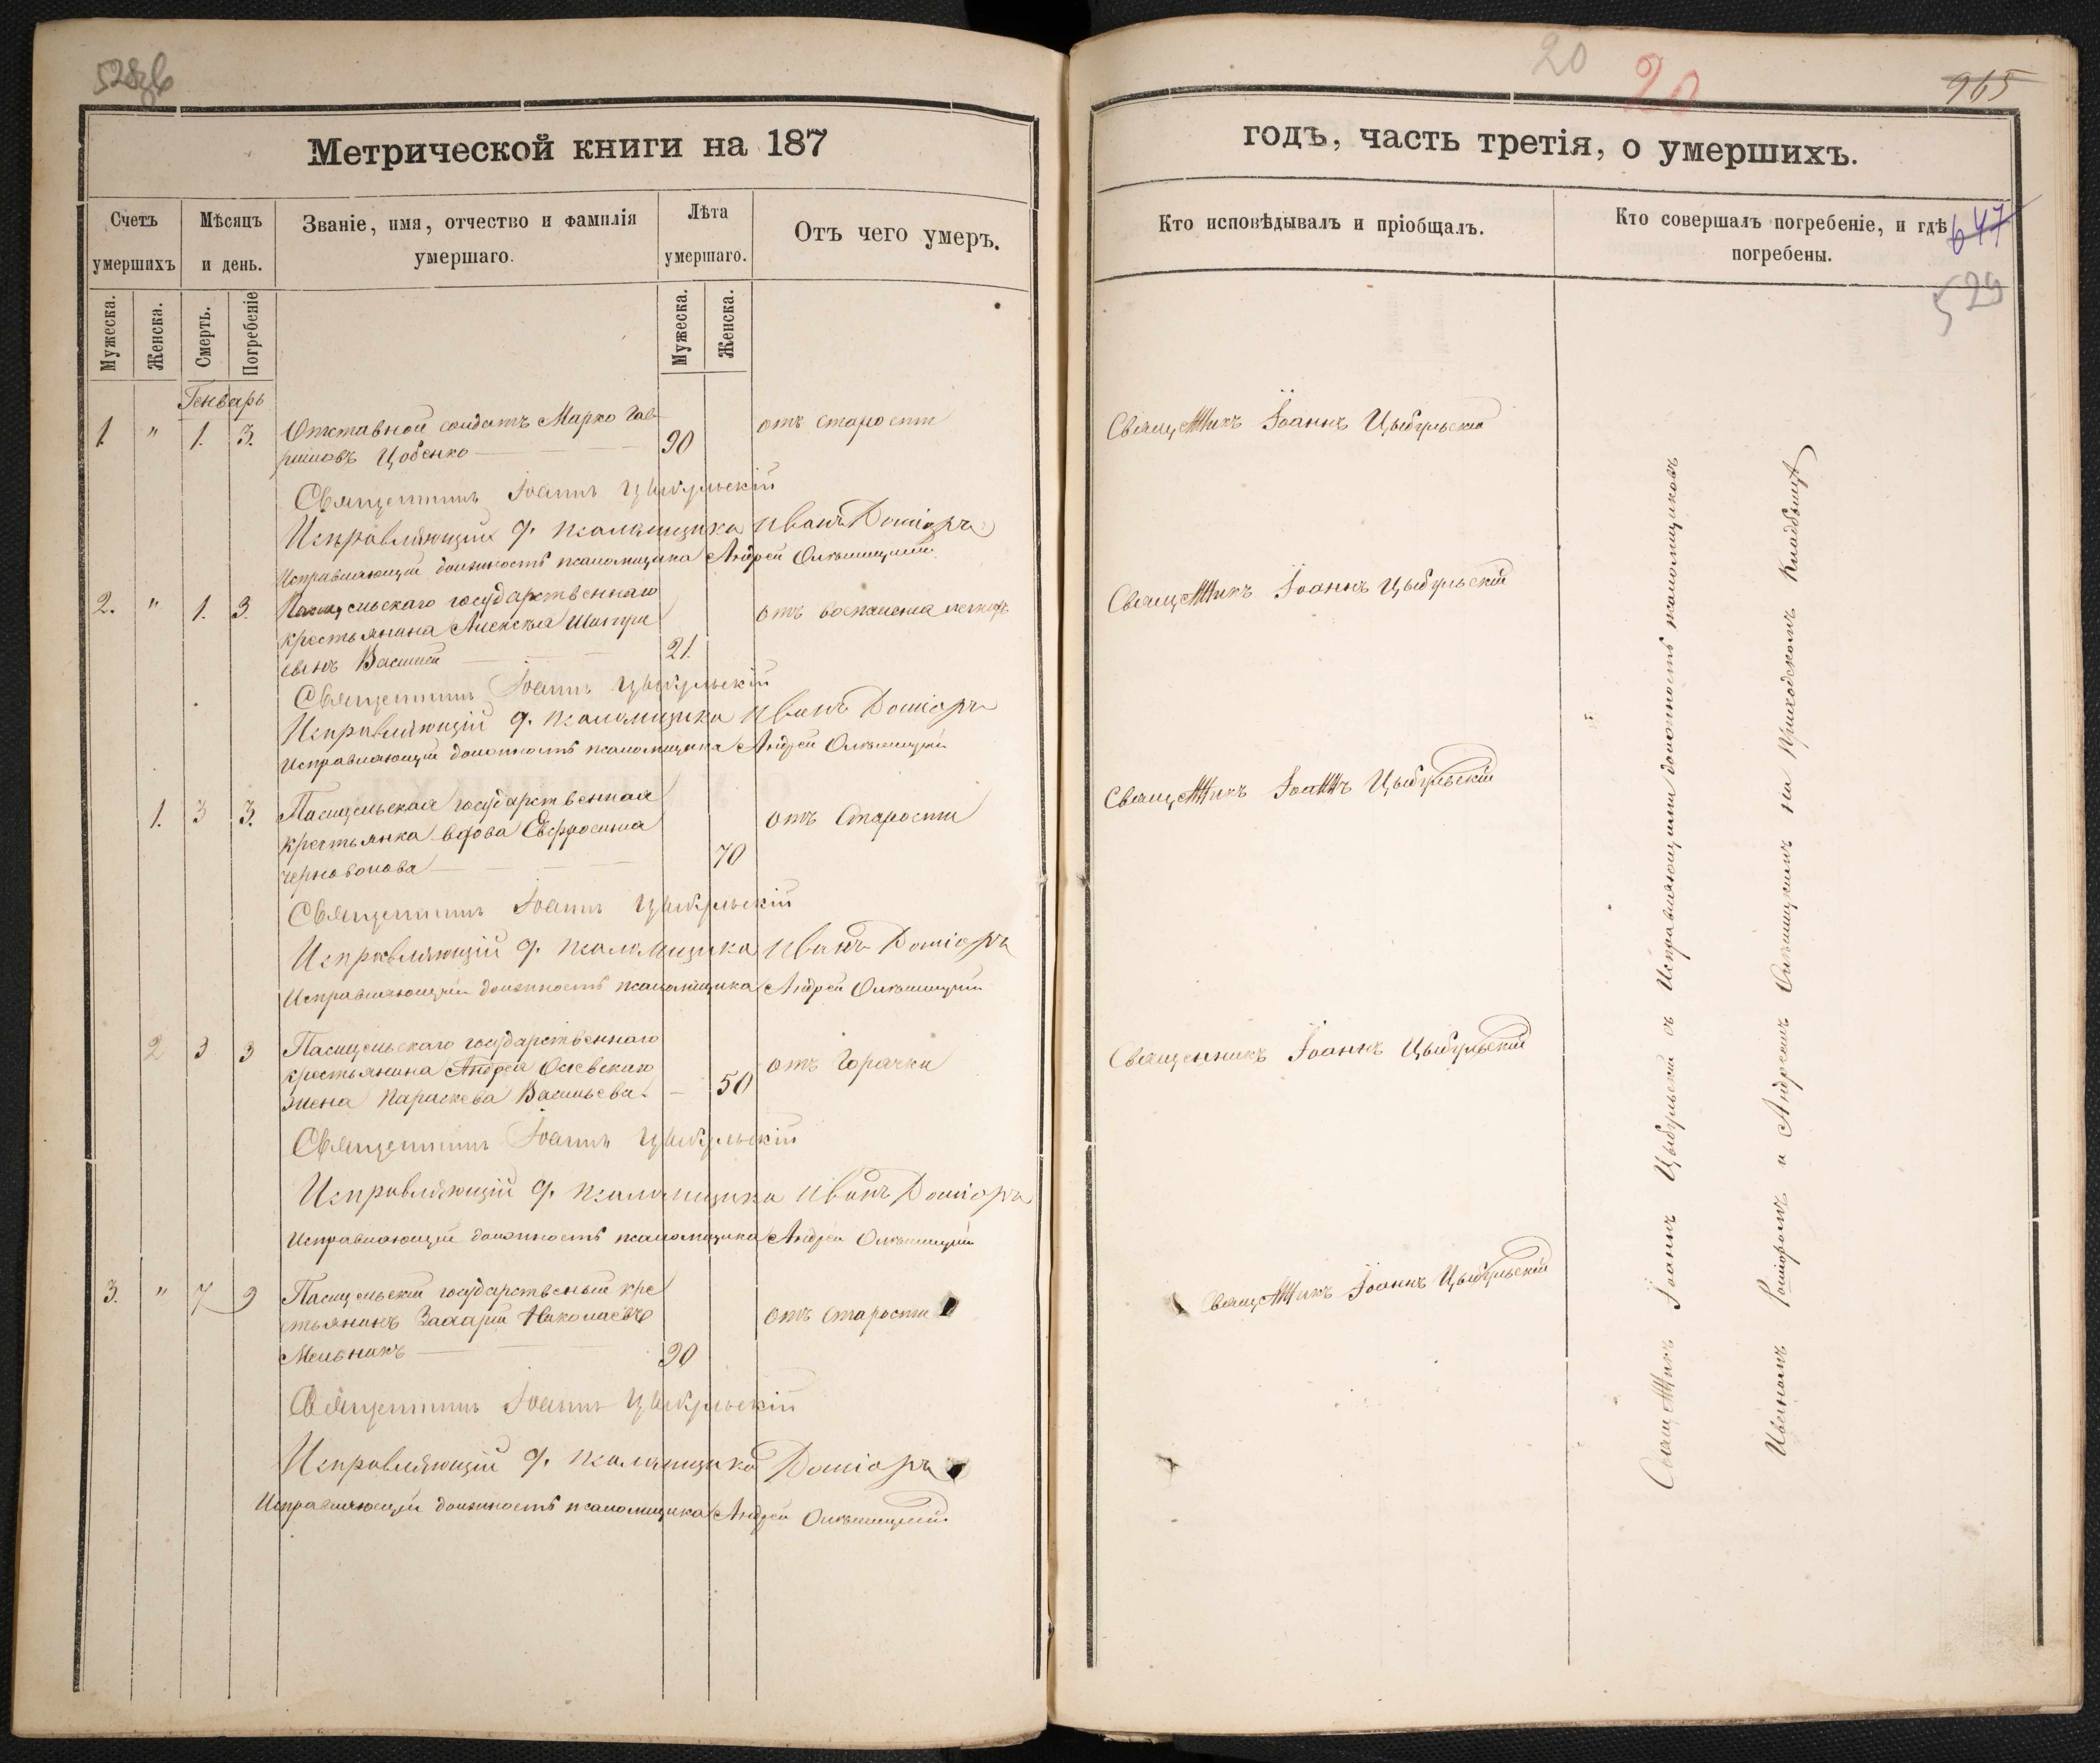 528об
Метрической книги на 187
Счетъ умершихъ
Мѣсяцъ и день.
Званіе, имя, отчество и фамилія умершаго.
Лѣта умершаго.
Отъ чего умеръ.
Мужеска.
Женска.
Смерть.
Погребеніе
Мужеска.
Женска.
Генварь
1 " 1. 3. Отставной солдатъ Марко Гав- отъ старости
риловъ Цобенко 90
Священникъ Іоаннъ Цыбульскій
Исправляющій д. псаломщика Иванъ
Исправляющій должность псаломщика Андрей
2. " 1. 3. государственнаго отъ воспаленія
крестьянина Алексѣя
сынъ Василій 21.
Священникъ Іоаннъ Цыбульскій
Исправляющій д. псаломщика Иванъ
Исправляющій должность псаломщика Андрей
1. 3 3. Пасицельская государственная отъ Старости
крестьянка вдова Евфросинія
70
Священникъ Іоаннъ Цыбульскій
Исправляющій д. псаломщика Иванъ
Исправляющій должность псаломщика Андрей
2 3 3 Пасицельскаго государственнаго отъ Горячки
крестьянина Андрея
жена Параскева Васильева 50
Священникъ Іоаннъ Цыбульскій
Исправляющій д. псаломщика Иванъ
Исправляющій должность псаломщика Андрей
3. " 7 9 Пасицельскій государственый кре отъ старости
стьянинъ Захарій Николаевъ
Мельникъ 90
Священникъ Іоаннъ Цыбульскій
Исправляющій д. псаломщика
Исправляющій должность псаломщика Андрей
20
20
965
годъ, часть третія, о умершихъ.
Кто исповѣдывалъ и пріобщалъ.
Кто совершалъ погребеніе, и гдѣ погребены.
647
529
Священникъ Іоаннъ Цыбульскій
Священникъ Іоаннъ Цыбульскій
Священникъ Іоаннъ Цыбульскій
Священникъ Іоаннъ Цыбульскій
Священникъ Іоаннъ Цыбульскій
Священникъ Іоаннъ Цыбульскій съ Исправляющими должность псаломщиковъ
Иваномъ и Андреемъ на Приходскомъ Кладбищѣ